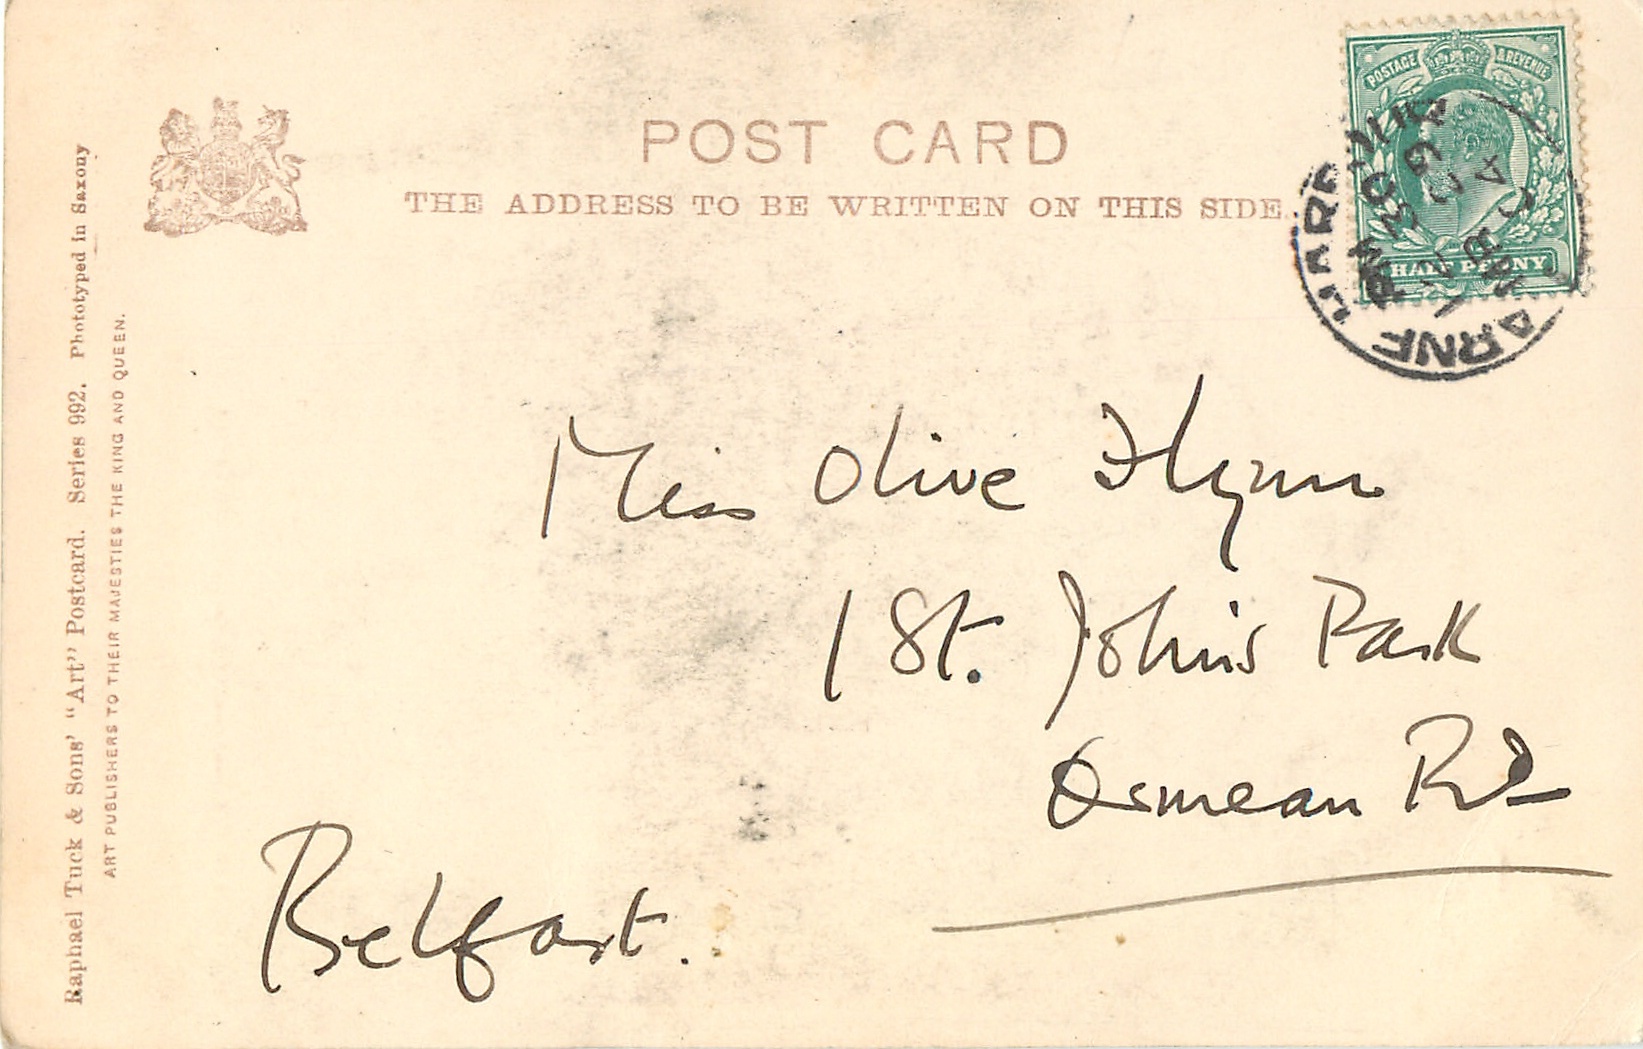 POST CARD
THE ADDRESS TO BE WRITTEN ON THIS SIDE
POSTAGE & REVENUE
HALF PENNY
LARNE HARBOUR
Miss Olive Flynn
1 St. John's Park
Osmean Rd
Belfast.
Raphael Tuck & Sons' "Art" Postcard. Series 992. Phototyped in Saxony
ART PUBLISHERS TO THEIR MAJESTIES THE KING AND QUEEN.